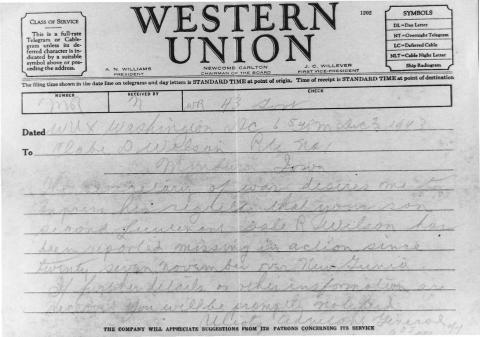 CLASS OF SERVICE
This is a full-rate
Telegram or Cable-
gram unless its de-
ferred character is in-
dicated by a suitable
symbol above or pre-
ceding the address.
WESTERN
UNION
1202
A. N. WILLIAMS
PRESIDENT
NEWCOMB CARLTON
CHAIRMAN OF THE BOARD
J. C. WILLEVER
FIRST VICE-PRESIDENT
SYMBOLS
DL=Day Letter
NT=Overnight Telegram
LC=Deferred Cable
NLT=Cable Night Letter
Ship Radiogram
The filing time shown in the date line on telegrams and day letters is STANDARD TIME at point of origin. Time of receipt is STANDARD TIME at point of destination
NUMBER
RECEIVED BY
CHECK
N WR 43 Govt
Dated Washington DC 654PM Dec 3 1943
To D Wilson Rte No1
Minden Iowa
The Secretary of war desires me to
express his regret that your son
second Lieutenant Dale R Wilson has
been reported missing in action since
twenty seven november over New Guinea
If further details or other information are
received you will be promptly notified
Ulio the Adjutant General
THE COMPANY WILL APPRECIATE SUGGESTIONS FROM ITS PATRONS CONCERNING ITS SERVICE